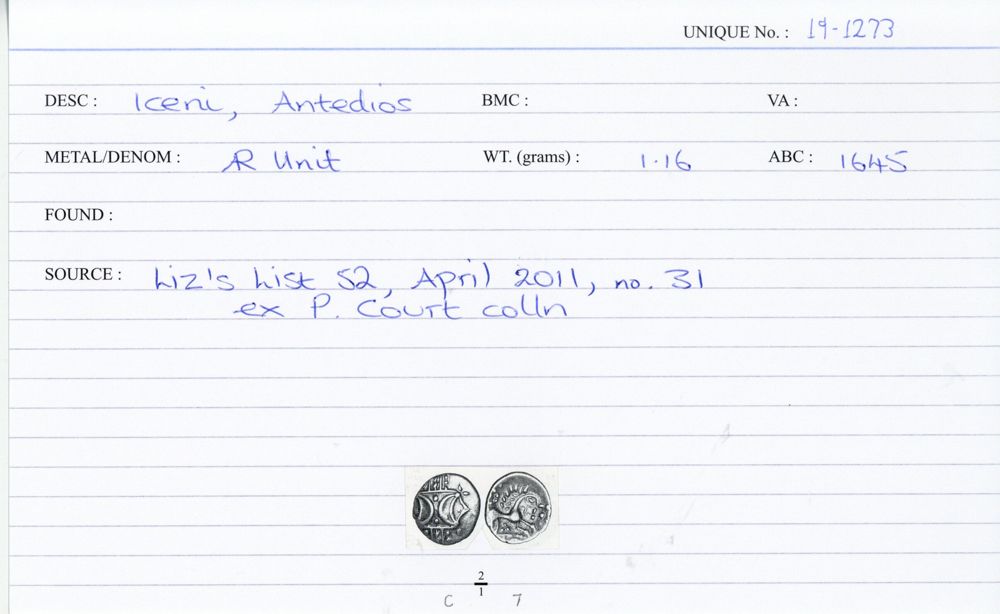 UNIQUE No. : 19-1273
DESC : Iceni, Antedios BMC : VA :
METAL/DENOM : AR Unit WT. (grams) : 1.16 ABC : 1645
FOUND :
SOURCE : Liz's List 52, April 2011, no. 31
ex P. Court colln
2
1
C 7